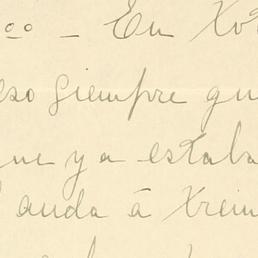 — En
eso siempre qu
ya estaba
anda á Xrein